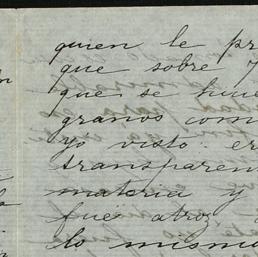 quien le pr
que sobre 7
que se hue
granos com
yo visto. er
transparen
materia y
fué atroz
lo mismo